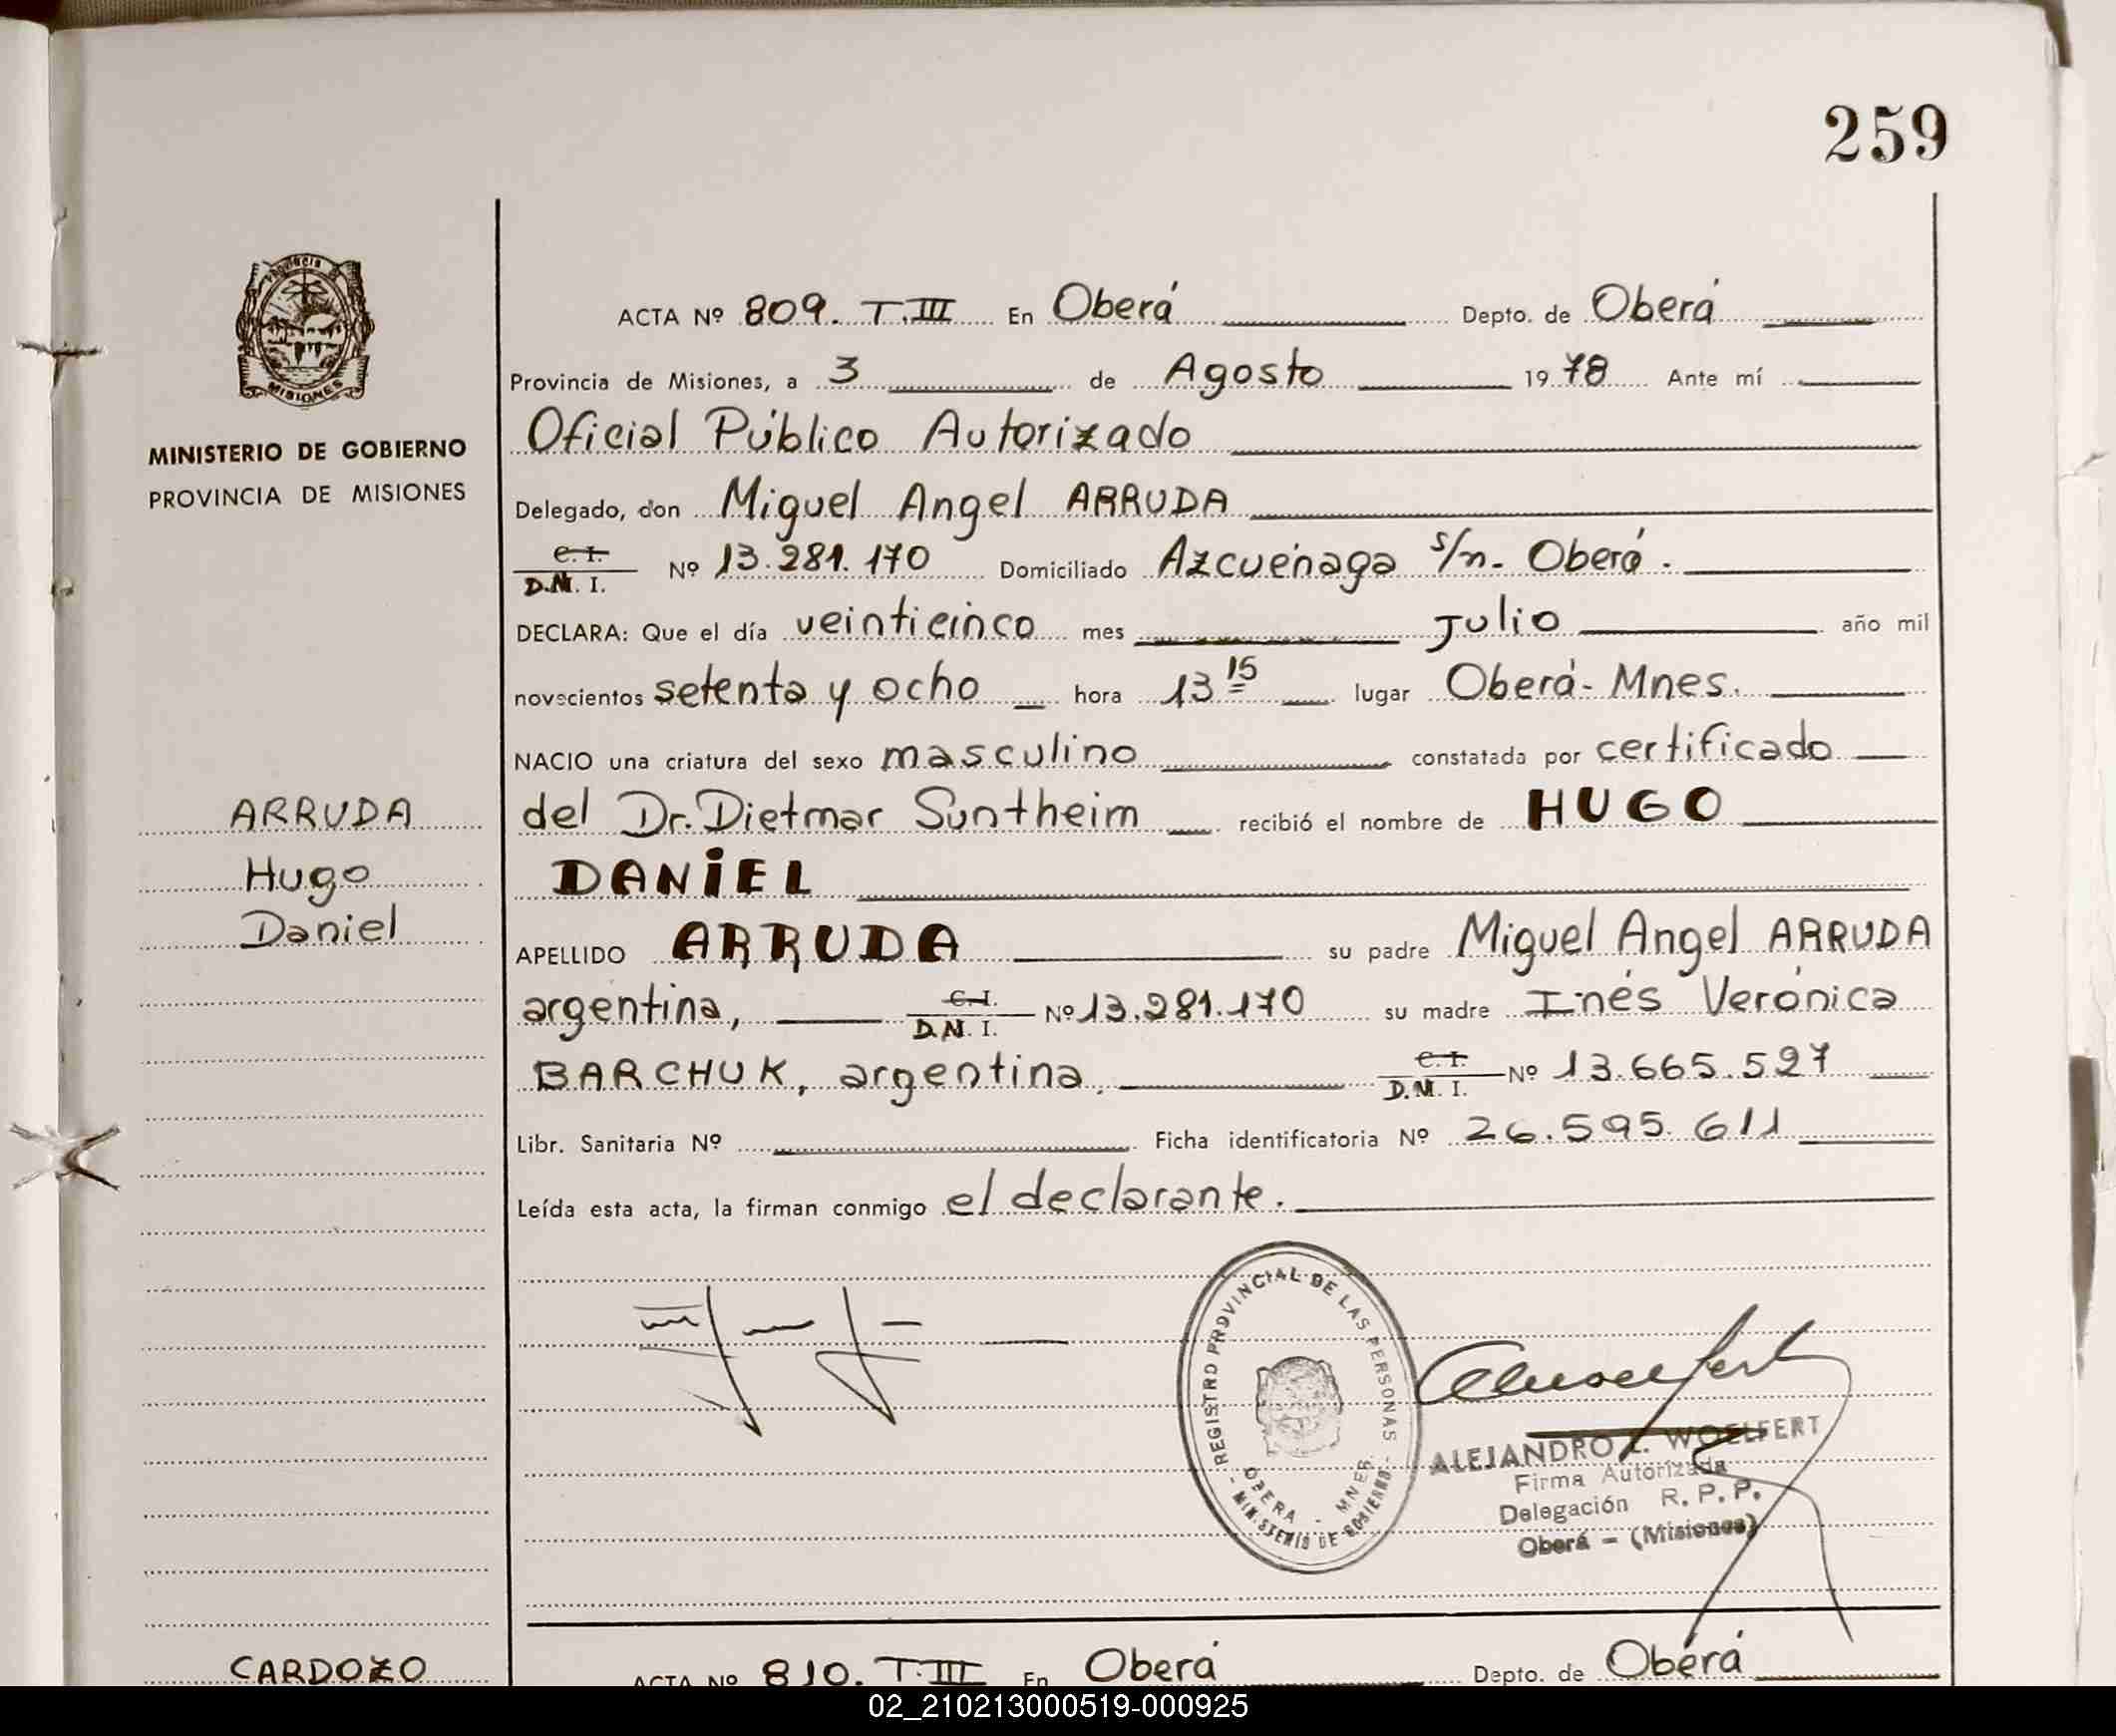 259
Provincia de
MISIONES
MINISTERIO DE GOBIERNO
PROVINCIA DE MISIONES
ARRUDA
Hugo
Daniel
ACTA Nº 809. T.III En Oberá Depto. de Oberá
Provincia de Misiones, a 3 de Agosto 1978 Ante mí
Oficial Público Autorizado
Delegado, don Miguel Angel ARRUDA
C.I.
D.N.I. Nº 13.281.170 Domiciliado Azcuénaga s/n. Oberá.
DECLARA: Que el día veinticinco mes Julio año mil
novecientos setenta y ocho hora 13 15 lugar Oberá - Mnes.
NACIO una criatura del sexo masculino constatada por certificado
del Dr. Dietmar Suntheim recibió el nombre de HUGO
DANIEL
APELLIDO ARRUDA su padre Miguel Angel ARRUDA
argentina, C.I. D.N.I. Nº 13.281.170 su madre Inés Verónica
BARCHUK, argentina. C.I. D.N.I. Nº 13.665.527
Libr. Sanitaria Nº Ficha identificatoria Nº 26.595.611
Leída esta acta, la firman conmigo el declarante.
- REGISTRO PROVINCIAL DE LAS PERSONAS -
OBERA - MNES.
MINISTERIO DE GOBIERNO
ALEJANDRO L. WOELFERT
Firma Autorizada
Delegación R. P. P.
Oberá - (Misiones)
CARDOZO
ACTA Nº 810. T.III En Oberá Depto. de Oberá
02_210213000519-000925